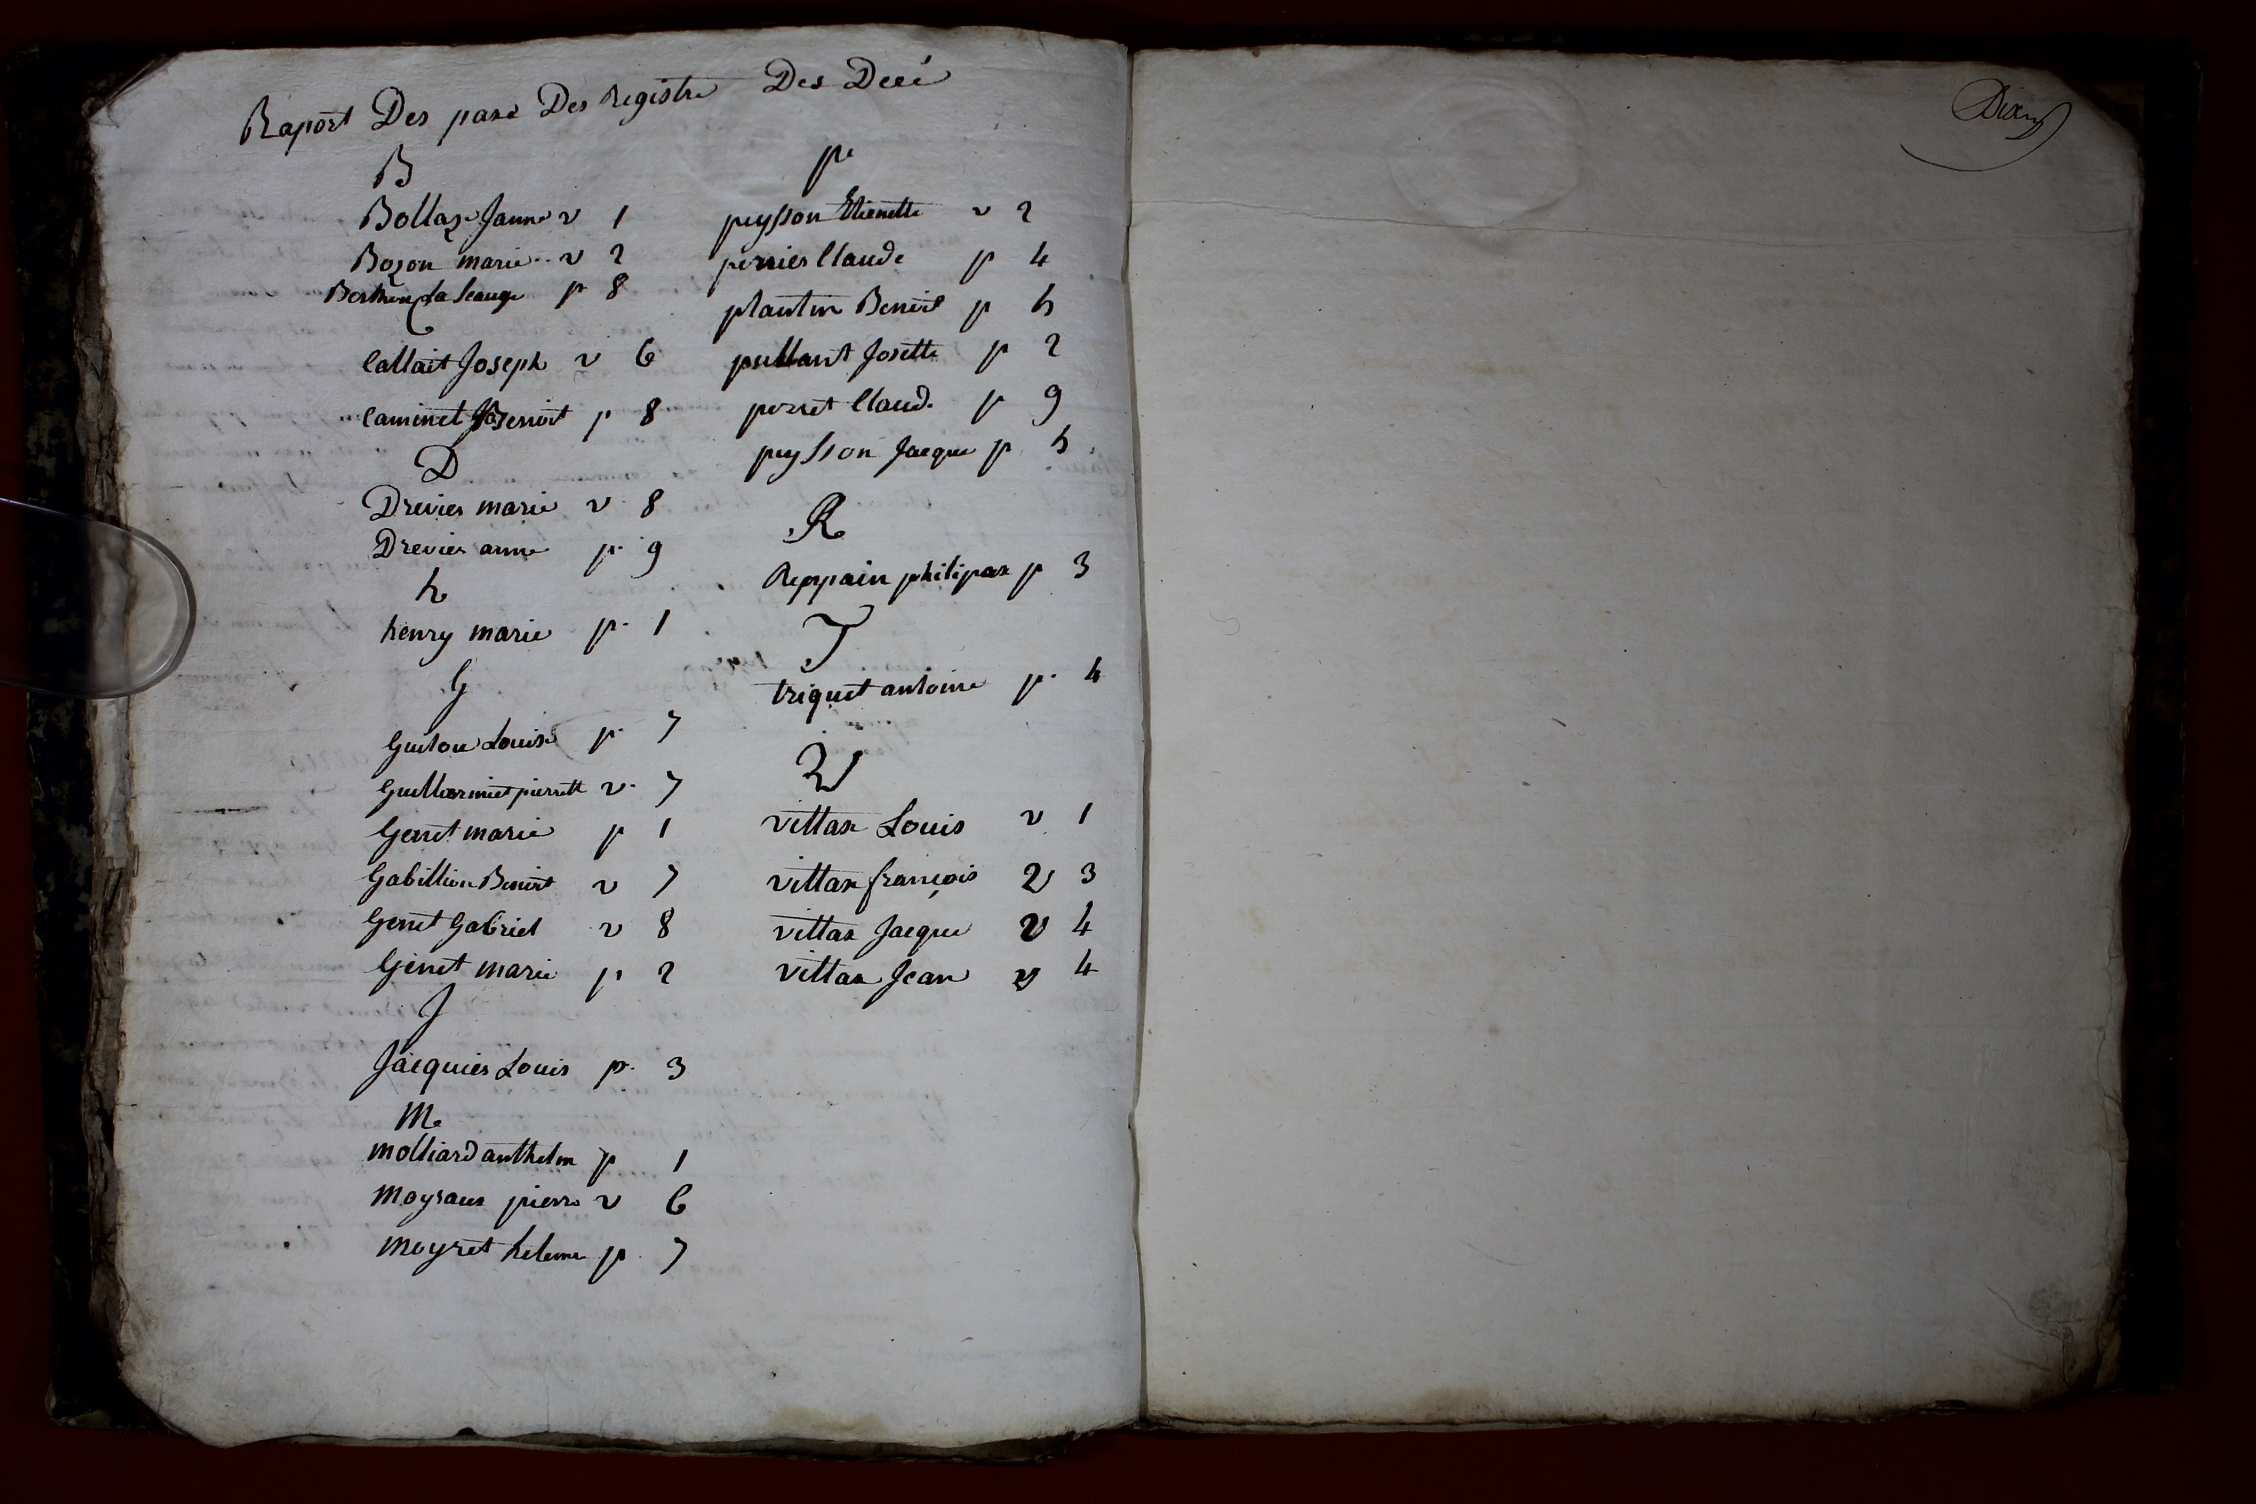 Raport Des paxe Des Registre Des Decé
B
Bollaz Janne v 1
Bozon marie v 2
p 8
Callait Joseph v 6
Caminet Benoit p 8
D
Drevier marie v 8
Drevier anne p 9
h
henry marie p 1
G
Guilou Louise p 7
Guillerminet pierrette v 7
Genet marie p 1
Gabillion Benoit v 7
Genet Gabriel v 8
Genet marie p 2
J
Jacquier Louis p 3
M
Molliard anthelm p 1
pierre v 6
Moyret helenne p 7
p
peysson Etienette v 2
perrier Claude p 4
plantin Benoit p 5
Josette p 2
perret Claude p 9
peysson Jacque p 5
R
Reppain p 3
T
triquet antoine p 4
V
villax Louis v 1
villax françois V 3
villax Jacque v 4
villax Jean v 4
Dix